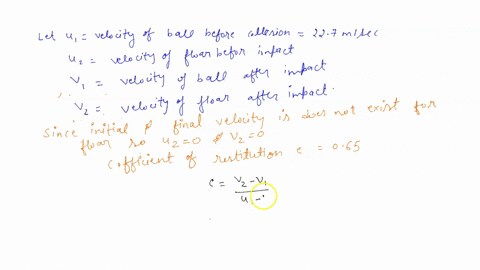 Let u₁ = velocity of ball before collesion = 22.7 m/sec
u₂ = velocity of floar befor impact
V₁ = velocity of ball after impact
V₂ = velocity of floar after impact.
Since initial & final velocity is does not exist for
floar so u₂=0 & V₂=0
Coefficient of restitution e = 0.65
e = V₂-V₁
u -